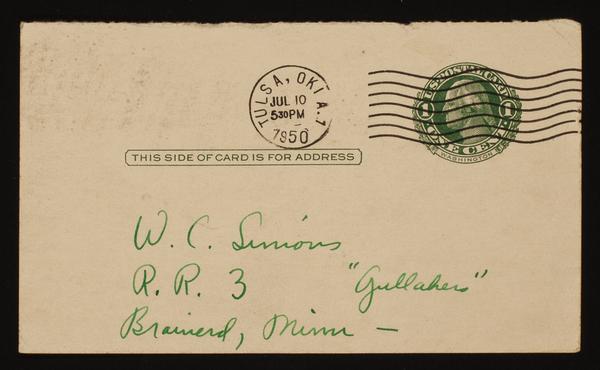 TULSA, OKLA.
JUL 10
530PM
1950
U.S. POSTAL CARD
1 1
ONE CENT
WASHINGTON
THIS SIDE OF CARD IS FOR ADDRESS
W. C. Simons
R. R. 3 "Gullakers"
Brainerd, Minn —